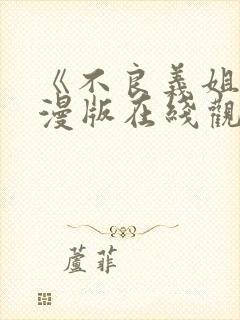 《不良義姐
漫版在綫觀
蘆菲